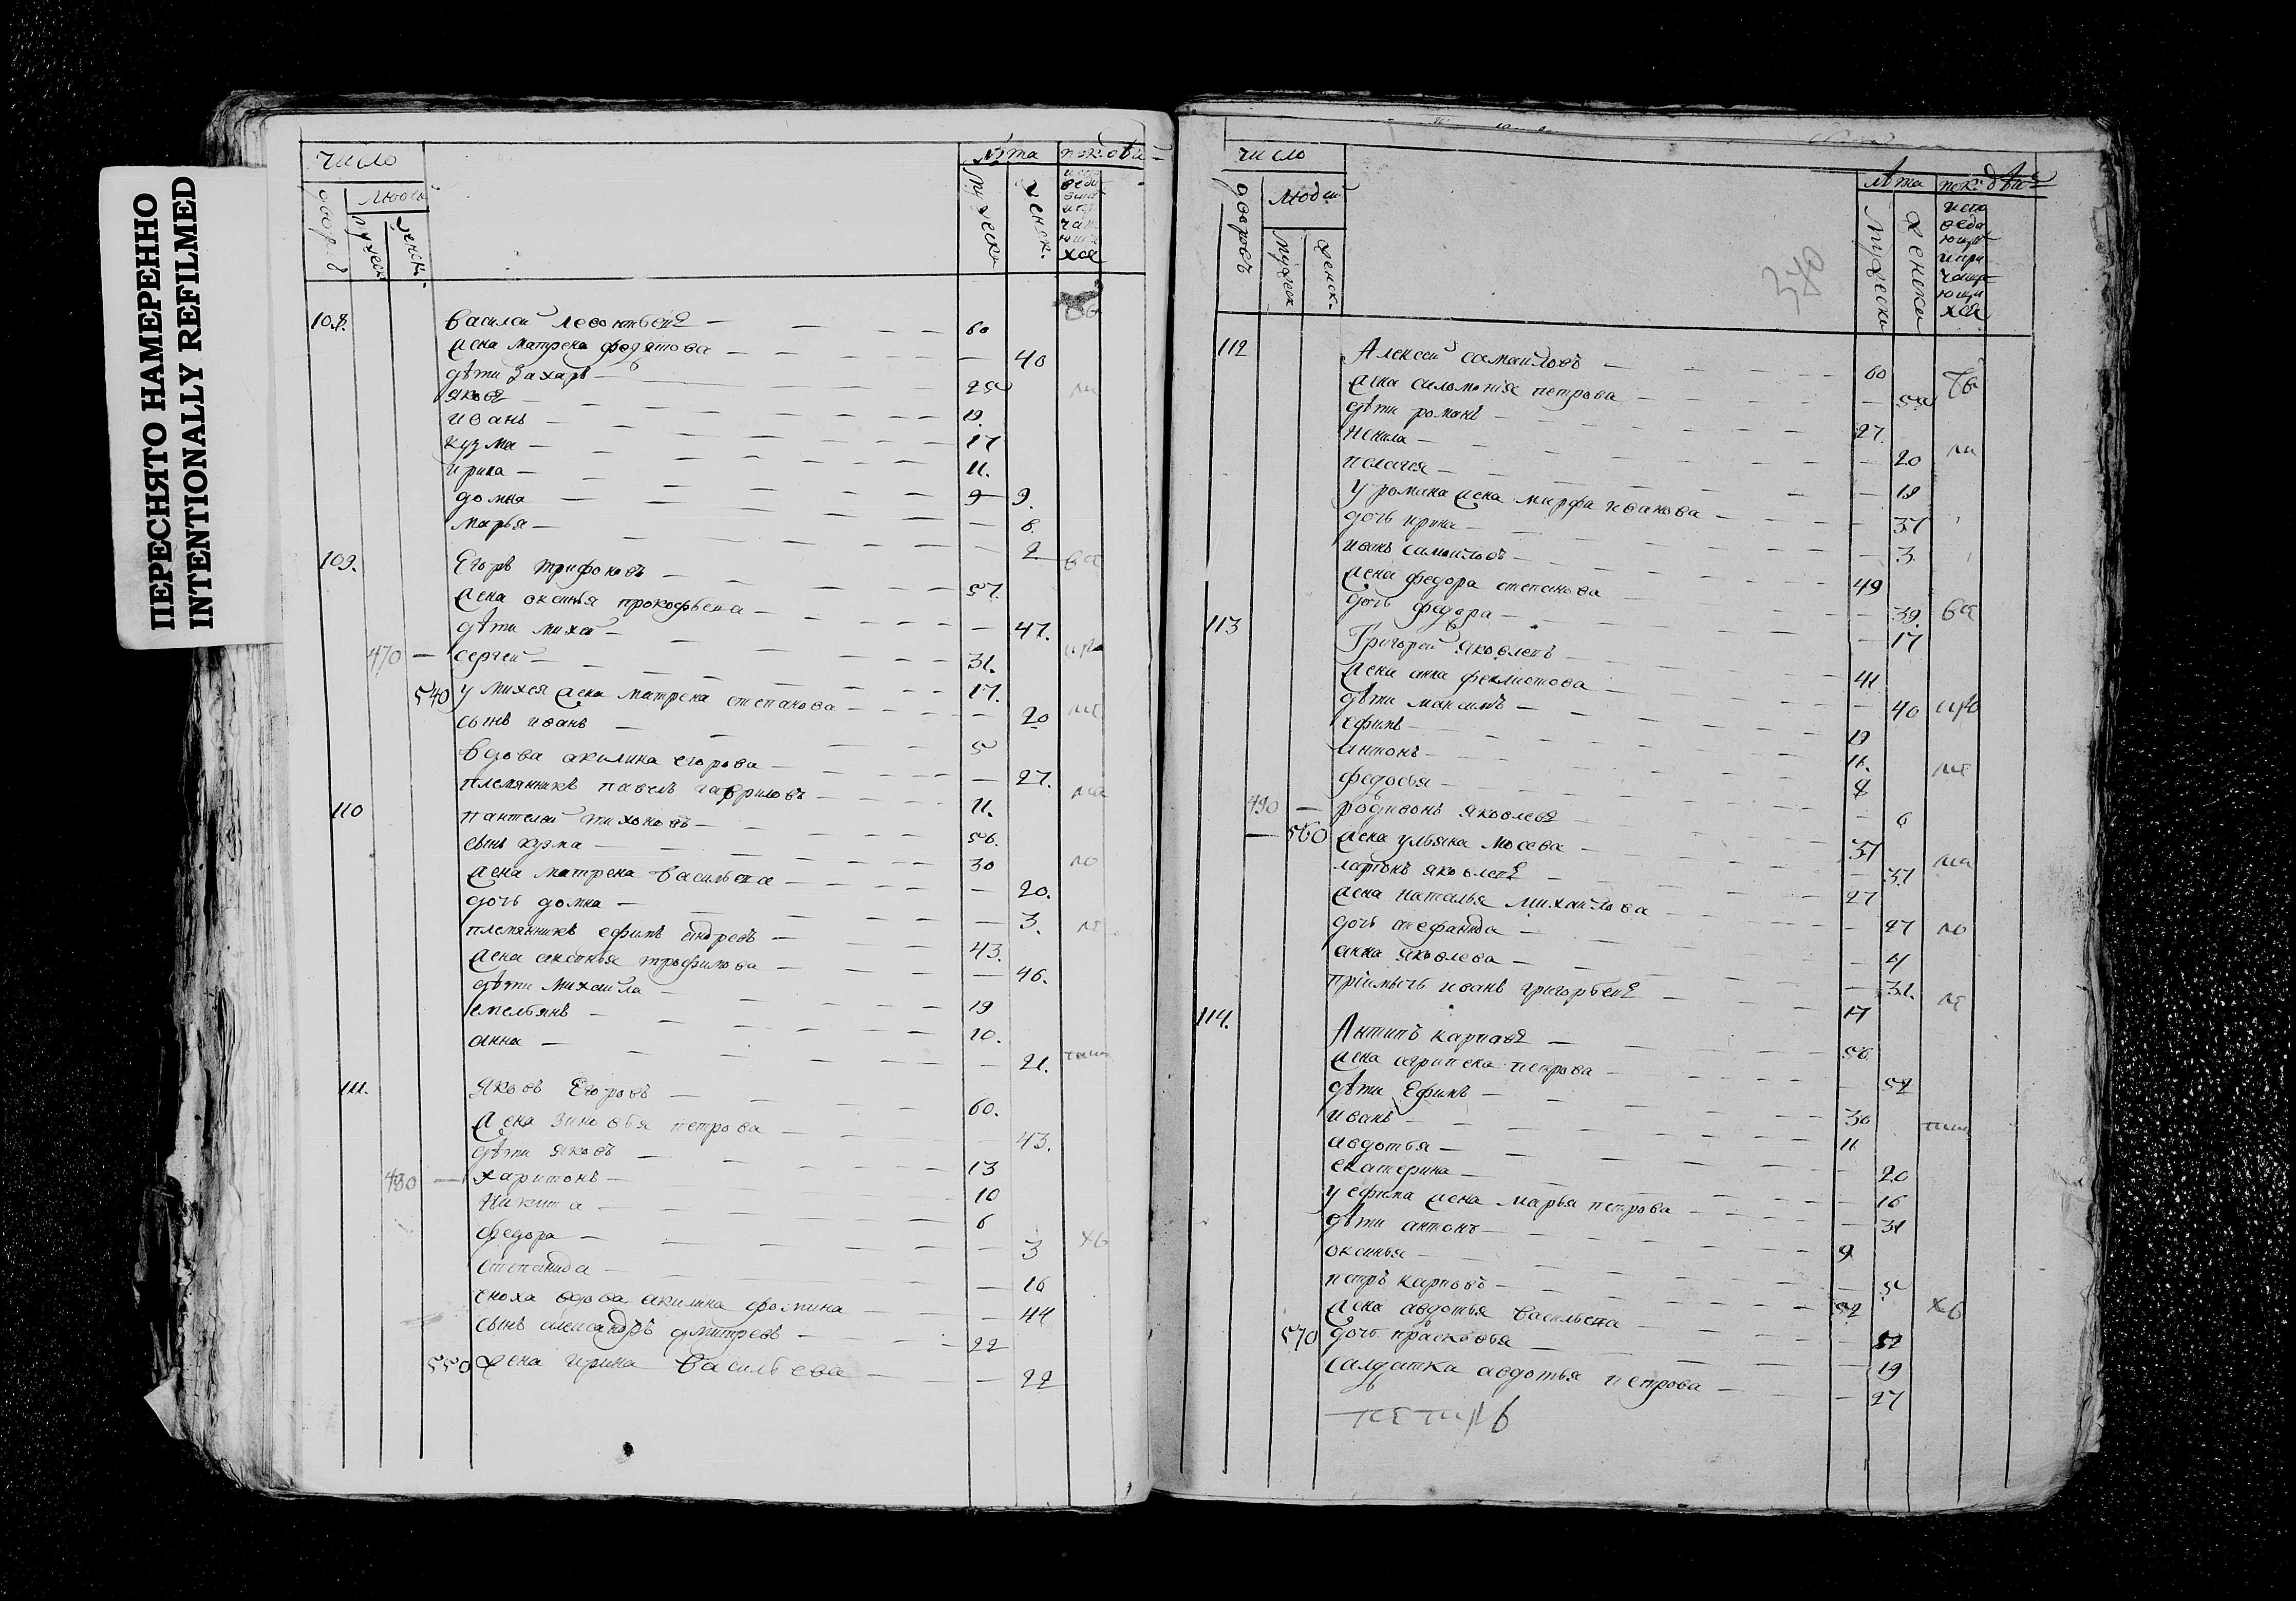 ПЕРЕСНЯТО НАМЕРЕННО
INTENTIONALLY REFILMED
число
людей
мужеск
женск.
лѣта
мужеска
женск.
108. василей леоонтьевъ — 60
жена матрена федотова — 40
дѣти захаръ — 25
яковъ — 19.
иванъ — 17
кузма — 11.
ирина — 9 9.
домна — 8
марья — 2
109. Егоръ трифоновъ — 57.
жена оксинья прокофьева — 47.
дѣти михей — 31.
470 — сергей — 17.
540 у михея жена матрена степанова — 20
сынъ иванъ — 5
вдова акилина егорова — 27.
племянникъ павелъ гавриловъ — 11.
110 пантелей тихоновъ — 56.
сынъ кузма — 30
жена матрена васильева — 20.
дочь домна — 3.
племянникъ ефимъ андреевъ — 43.
жена аксинья трофимова — 46.
дѣти михайла — 19
емельянъ — 10.
анна — 21.
111. яковъ Егоровъ — 60.
жена зиновья петрова — 43.
дѣти яковъ — 13
480 — харитонъ — 10
никита — 6
федора — 3
степанида — 16
сноха вдова акилина фомина — 44
сынъ александръ дмитревъ — 22
550 жена ирина васильева — 22
число
людей
дворовъ
мужеск
женск.
лѣта
мужеска
женска
испо
веда
ющи
и при
чаща
ющи
хся
340
112 Алексей самойловъ — 60
жена саломонія петрова — 55
дѣти романъ — 27.
ненила — 20
пелагея — 19
у романа жена марфа иванова — 37
дочь ирина — 3
иванъ самойловъ — 49
жена федора степанова — 39.
дочь федора — 17
113 Григорей яковлевъ — 41
жена анна феклистова — 40
дѣти максимъ — 19
ефимъ — 11.
антонъ — 8
федосья — 6
490 — родивонъ яковлевъ — 37
— 560 жена ульяна мосева — 37
ларионъ яковлевъ — 27
жена наталья михайлова — 27
дочь стефанида — 4
анна яковлева — 31.
пріимычь иванъ григорьевъ — 17
114. Антипъ карповъ — 56
жена агрипена петрова — 52
дѣти Ефимъ — 30
иванъ — 11
авдотья — 20
екатерина — 16
у ефима жена марья петрова — 31
дѣти антонъ — 9
оксинья — 5
петръ карповъ — 52
жена авдотья васильева — 52
570 дочь прасковья — 19
салдатка авдотья петрова — 27